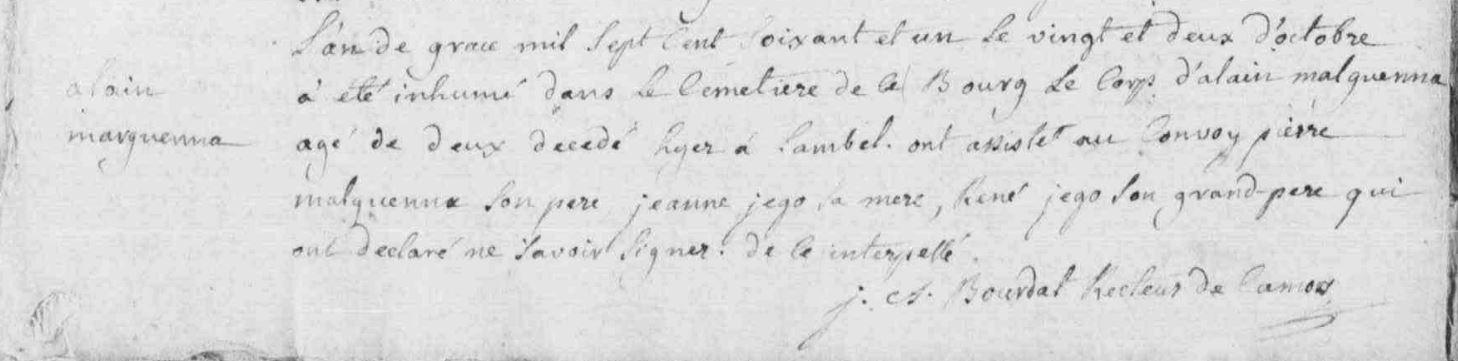 L'an de grace mil Sept Cent Soixant et un le vingt et deux d'octobre
alain
à été inhumé dans le Cémetiere de ce Bourg Le Corps d'alain malquenna
marguenna
agé de deux decedé hyer à Lambel. ont assistet au Convoy pierre
malguenna Son pere, jeanne jego sa mere, René jego Son grand-pere qui
ont declaré ne Savoir Signer. de ce interpellé.
j. Bourdat Recteur de Camors